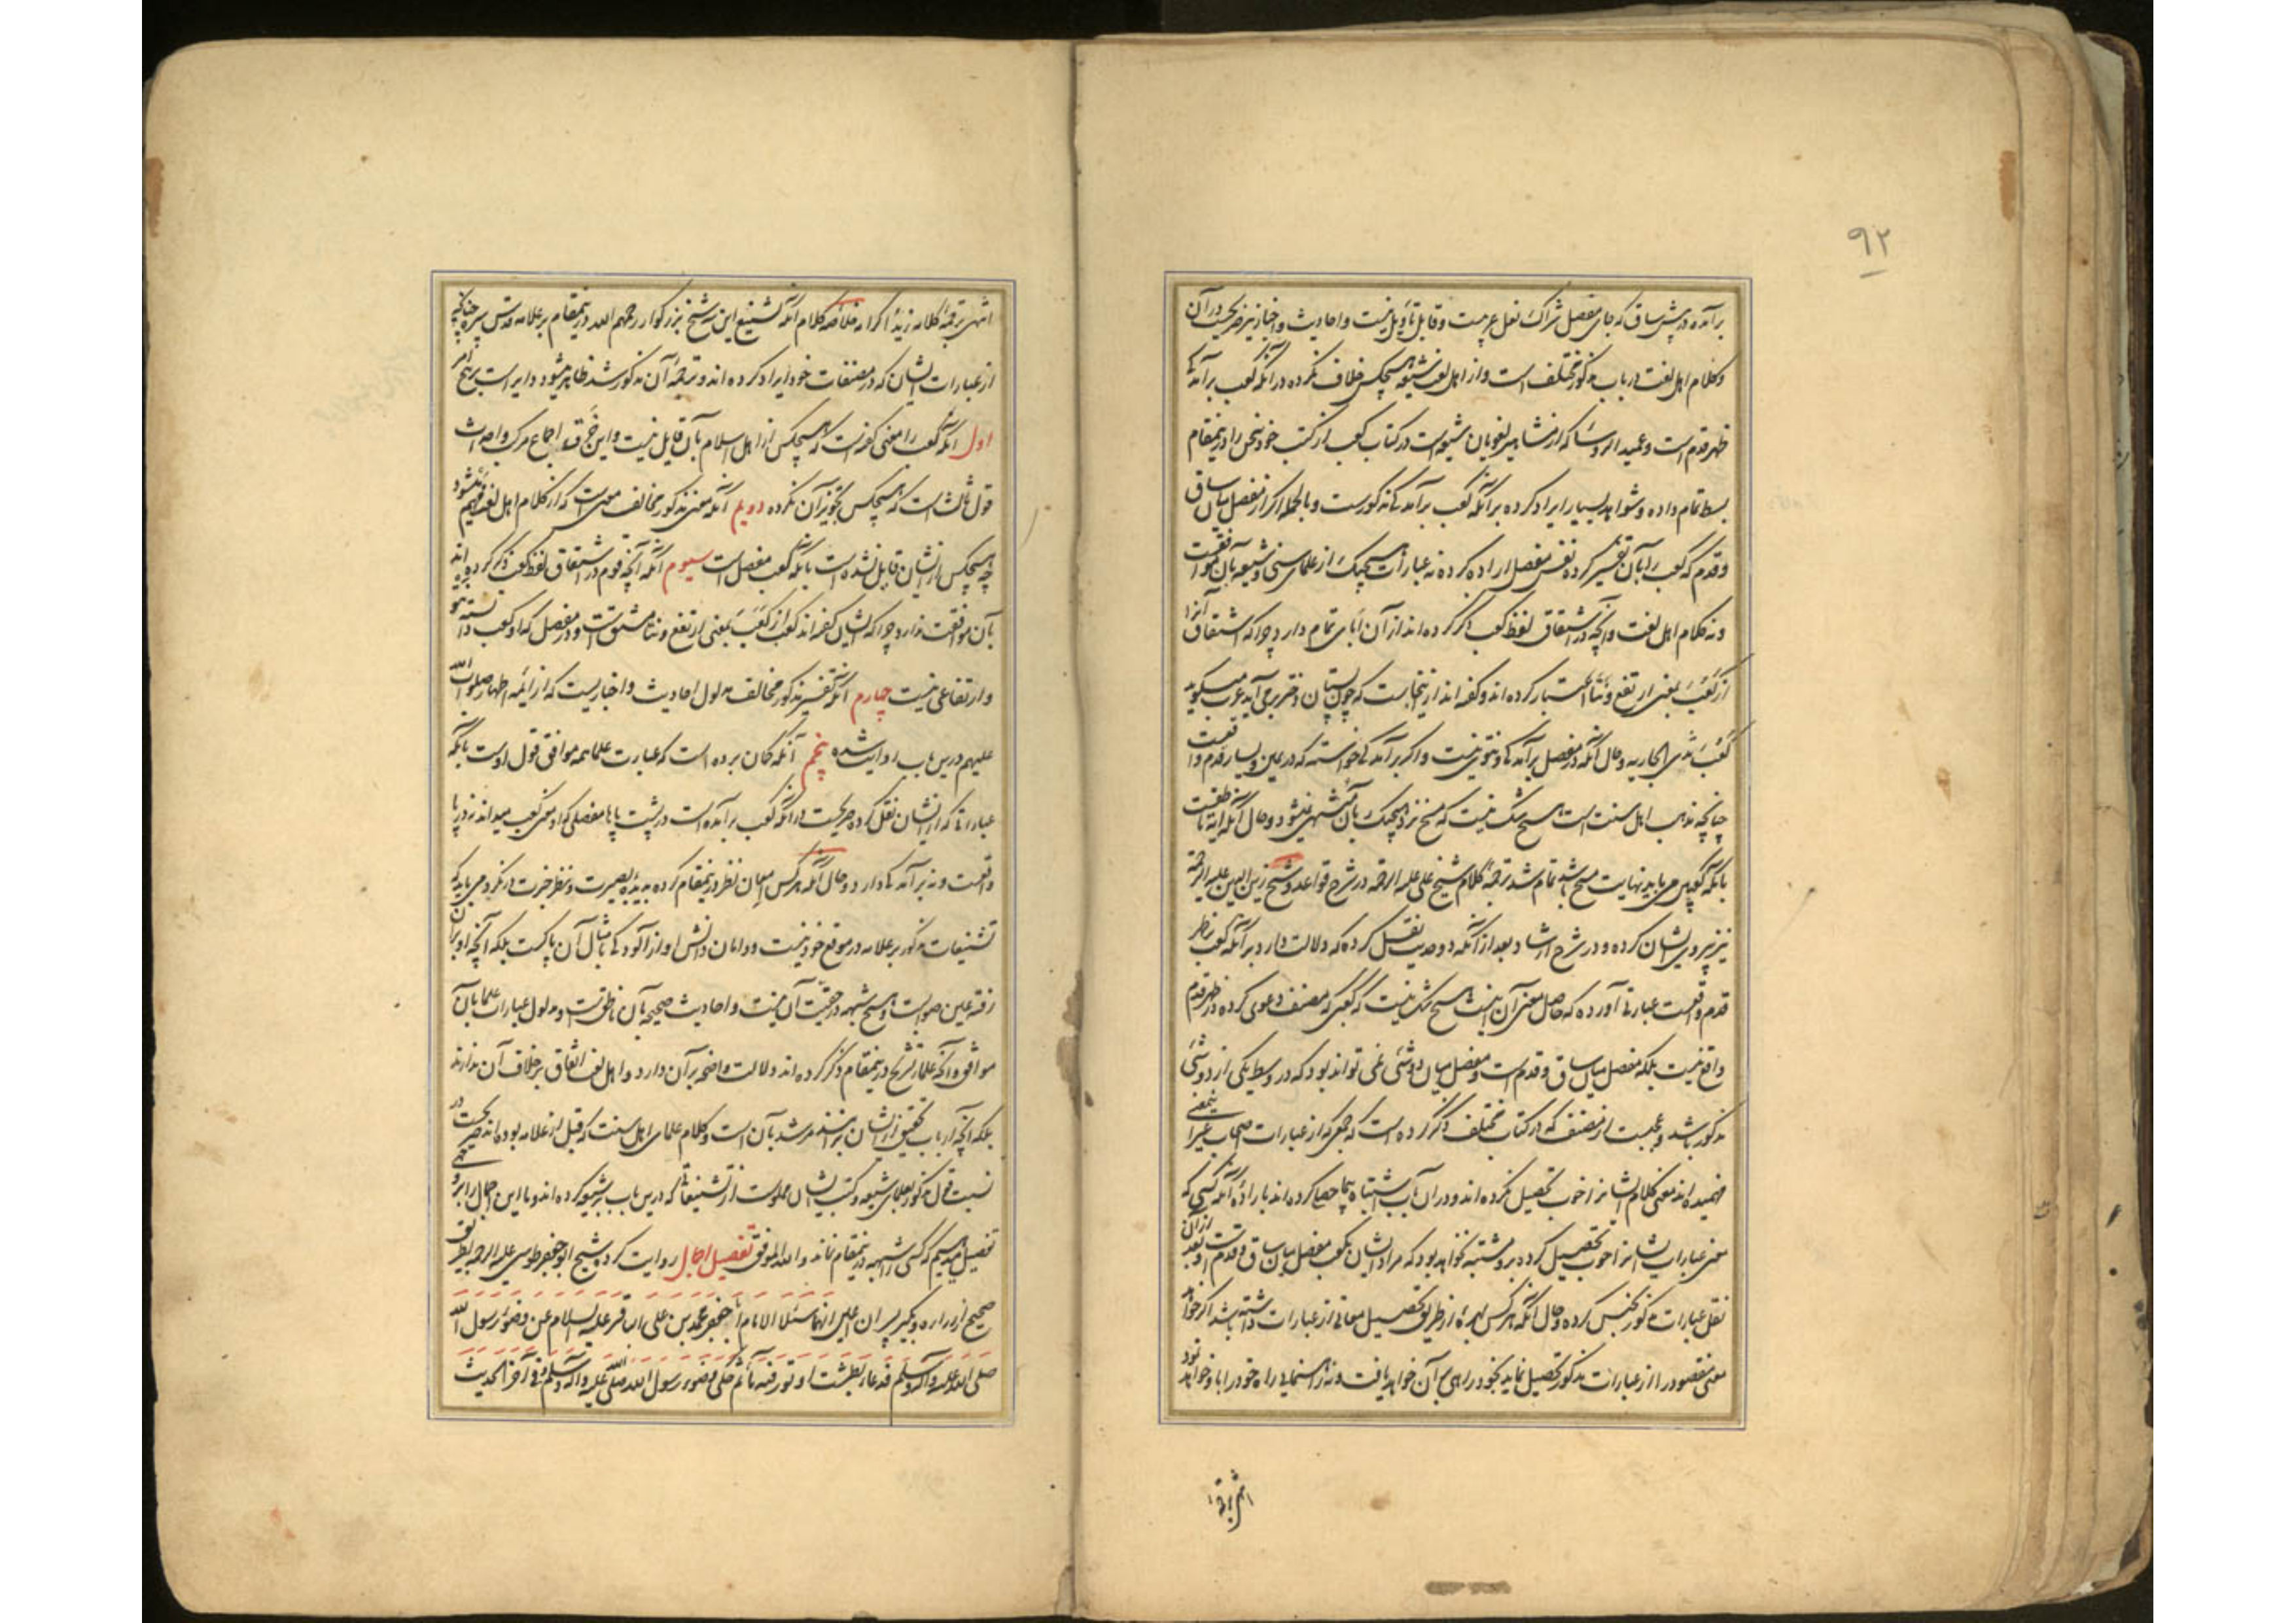 ۹۲
برآمده در پیش ساق که جای مفصل شراک نعل عربیست و قابل تأویل نیست و احادیث و اخبار نیز صریحست در آن
و کلام اهل لغت در باب مذکور مختلف است و از اهل لغت شیعه هیچکس خلاف نکرده در آنکه کعب برآمدگی
ظهر قدم است و عمید الروسا که از مشاهیر لغویان شیعه است در کتاب کعب از کتب خود سخن را درینمقام
بسط تمام داده و شواهد بسیار ایراد کرده بر آنکه کعب برآمدگی مذکورست و بالجمله اگر از مفصل میان ساق
و قدم که کعب را بآن تفسیر کرده نفس مفصل اراده کرده نه عبارات هیچیک از علمای سنی و شیعه بآن موافقست
و نه کلام اهل لغت و آنچه در اشتقاق لفظ کعب ذکر کرده‌اند از آن ابای تمام دارد چرا که اشتقاق آنرا
از کَعَبَ بمعنی ارتفع و نتأ اعتبار کرده‌اند و گفته‌اند ازینجاست که چون پستان دختر برمی‌آید عرب میگوید
کَعَبَ ثدی الجاریه و حال آنکه در مفصل برآمدگی و نتوی نیست و اگر برآمدگی خواسته که در یمین و یسار قدم واقعست
چنانچه مذهب اهل سنت است هیچ شک نیست که مسح نزد هیچیک بآن منتهی نمیشود و حال آنکه آیه ناطقست
بآنکه کعبین می‌باید نهایت مسح باشد تمام شد ترجمه کلام شیخ علی علیه الرحمه در شرح قواعد و شیخ زین الدین علیه الرحمة
نیز پیروی ایشان کرده و در شرح ارشاد بعد از آنکه دو حدیث نقل کرده که دلالت دارد بر آنکه کعب بر ظهر
قدم واقعست عبارتی آورده که حاصل معنی آن اینست هیچ شک نیست که کعبی که مصنف دعوی کرده در ظهر قدم
واقع نیست بلکه مفصل میان ساق و قدم است و مفصل میان دو شئی نمی تواند بود که در وسط یکی از دو شئی
مذکور باشد و عجبست از مصنف که در کتاب مختلف ذکر کرده است که جمعی که از عبارات اصحاب غیر این معنی
فهمیده‌اند معنی کلام ایشانرا خوب تحصیل نکرده‌اند و در آن باب اشتباه بجا حصا کرده‌اند با ارادهٔ آنکه کسی که
معنی عبارات ایشانرا خوب تحصیل کرده برو مشتبه نخواهد بود که مراد ایشان بکعب مفصل میان ساق و قدم است و بعد از آن
نقل عبارات مذکور بجنس کرده و حال آنکه هر کس بهرهٔ از طریق تحصیل معانی از عبارات داشته باشد اگر خواهد
معنی مقصود را از عبارات مذکور تحصیل نماید بخود راهی بر آن خواهد یافت و نه راهنمایی راه خود را باو خواهد نمود
انتهی ترجمة
انتهی ترجمة کلامه زید اکرامه خلاصه کلام آنکه تشنیع این سه شیخ بزرگوار رحمهم الله درینمقام بر علامه قدس سره چنانچه
از عبارات ایشان که در مصنفات خود ایراد کرده‌اند و ترجمه آن مذکور شد ظاهر میشود دایر است بر پنج امر
اول آنکه کعب را معنی گفته است که هیچکس از اهل اسلام بآن قایل نیست و این خرق اجماع مرکب و احداث
قول ثالث است که هیچکس تجویز آن نکرده دویم آنکه معنی مذکور مخالف معنیست که از کلام اهل لغت فهمیده میشود
چه هیچکس از ایشان قایل نشده است بآنکه کعب مفصل است سیوم آنکه آنچه قوم در اشتقاق لفظ کعب ذکر کرده‌اند
بآن موافقت ندارد چرا که ایشان گفته‌اند کعب از کَعَبَ بمعنی ارتفع و نتا مشتق است و در مفصل که او کعب دانسته نتو
و ارتفاعی نیست چهارم آنکه تفسیر مذکور مخالف مدلول احادیث و اخباریست که از ائمه اطهار صلوات الله
علیهم درین باب روایت شده پنجم آنکه گمان برده است که عبارت علما همه موافق قول اوست با آنکه
عباراتی که از ایشان نقل کرده صریحست در آنکه کعب برآمده است در پشت پا با مفصلی که او معنی کعب میداند نه در پا
واقعست و نه برآمدگی دارد و حال آنکه هر کس امعان نظر درینمقام کرده بدیدهٔ بصیرت و نظر خبرت در نگرد می‌یابد که
تشنیعات مذکور بر علامه در موقع خود نیست و دامان دانش او از آلودگی بامثال آن پاکست بلکه آنچه او بر آن
رفته عین صوابست و هیچ شبهه در حقیّت آن نیست و احادیث صحیحه بآن ناطقست و مدلول عبارات علما بآن
موافق و آنچه علماء تشریح درینمقام ذکر کرده‌اند دلالت واضحه بر آن دارد و اهل لغت اتفاق بر خلاف آن ندارند
بلکه آنچه ارباب تحقیق از ایشان بر آنند مرشد بآن است و کلام علمای اهل سنت که قبل از علامه بوده‌اند صریحست در
نسبت قول مذکور بعلمای شیعه و کتب ایشان مملوست از تشنیعاتی که درین باب بر شیعه کرده‌اند و ما این اجمال را بر وجهی
تفصیل میدهیم که کسی را شبهه درینمقام نماند والله الموفق تفصیل اجمال روایت کرده شیخ ابوجعفر طوسی علیه الرحمه بطریق
صحیح از زراره و بکیر پسران اعین انهما سئلا الامام ابا جعفر محمد بن علی الباقر علیه السلام عن وضوء رسول الله
صلی الله علیه وآله وسلم فدعا بطشت او تور فیه ماء ثم حکی وضوء رسول الله صلی الله علیه وآله وسلم و فی آخر الحدیث